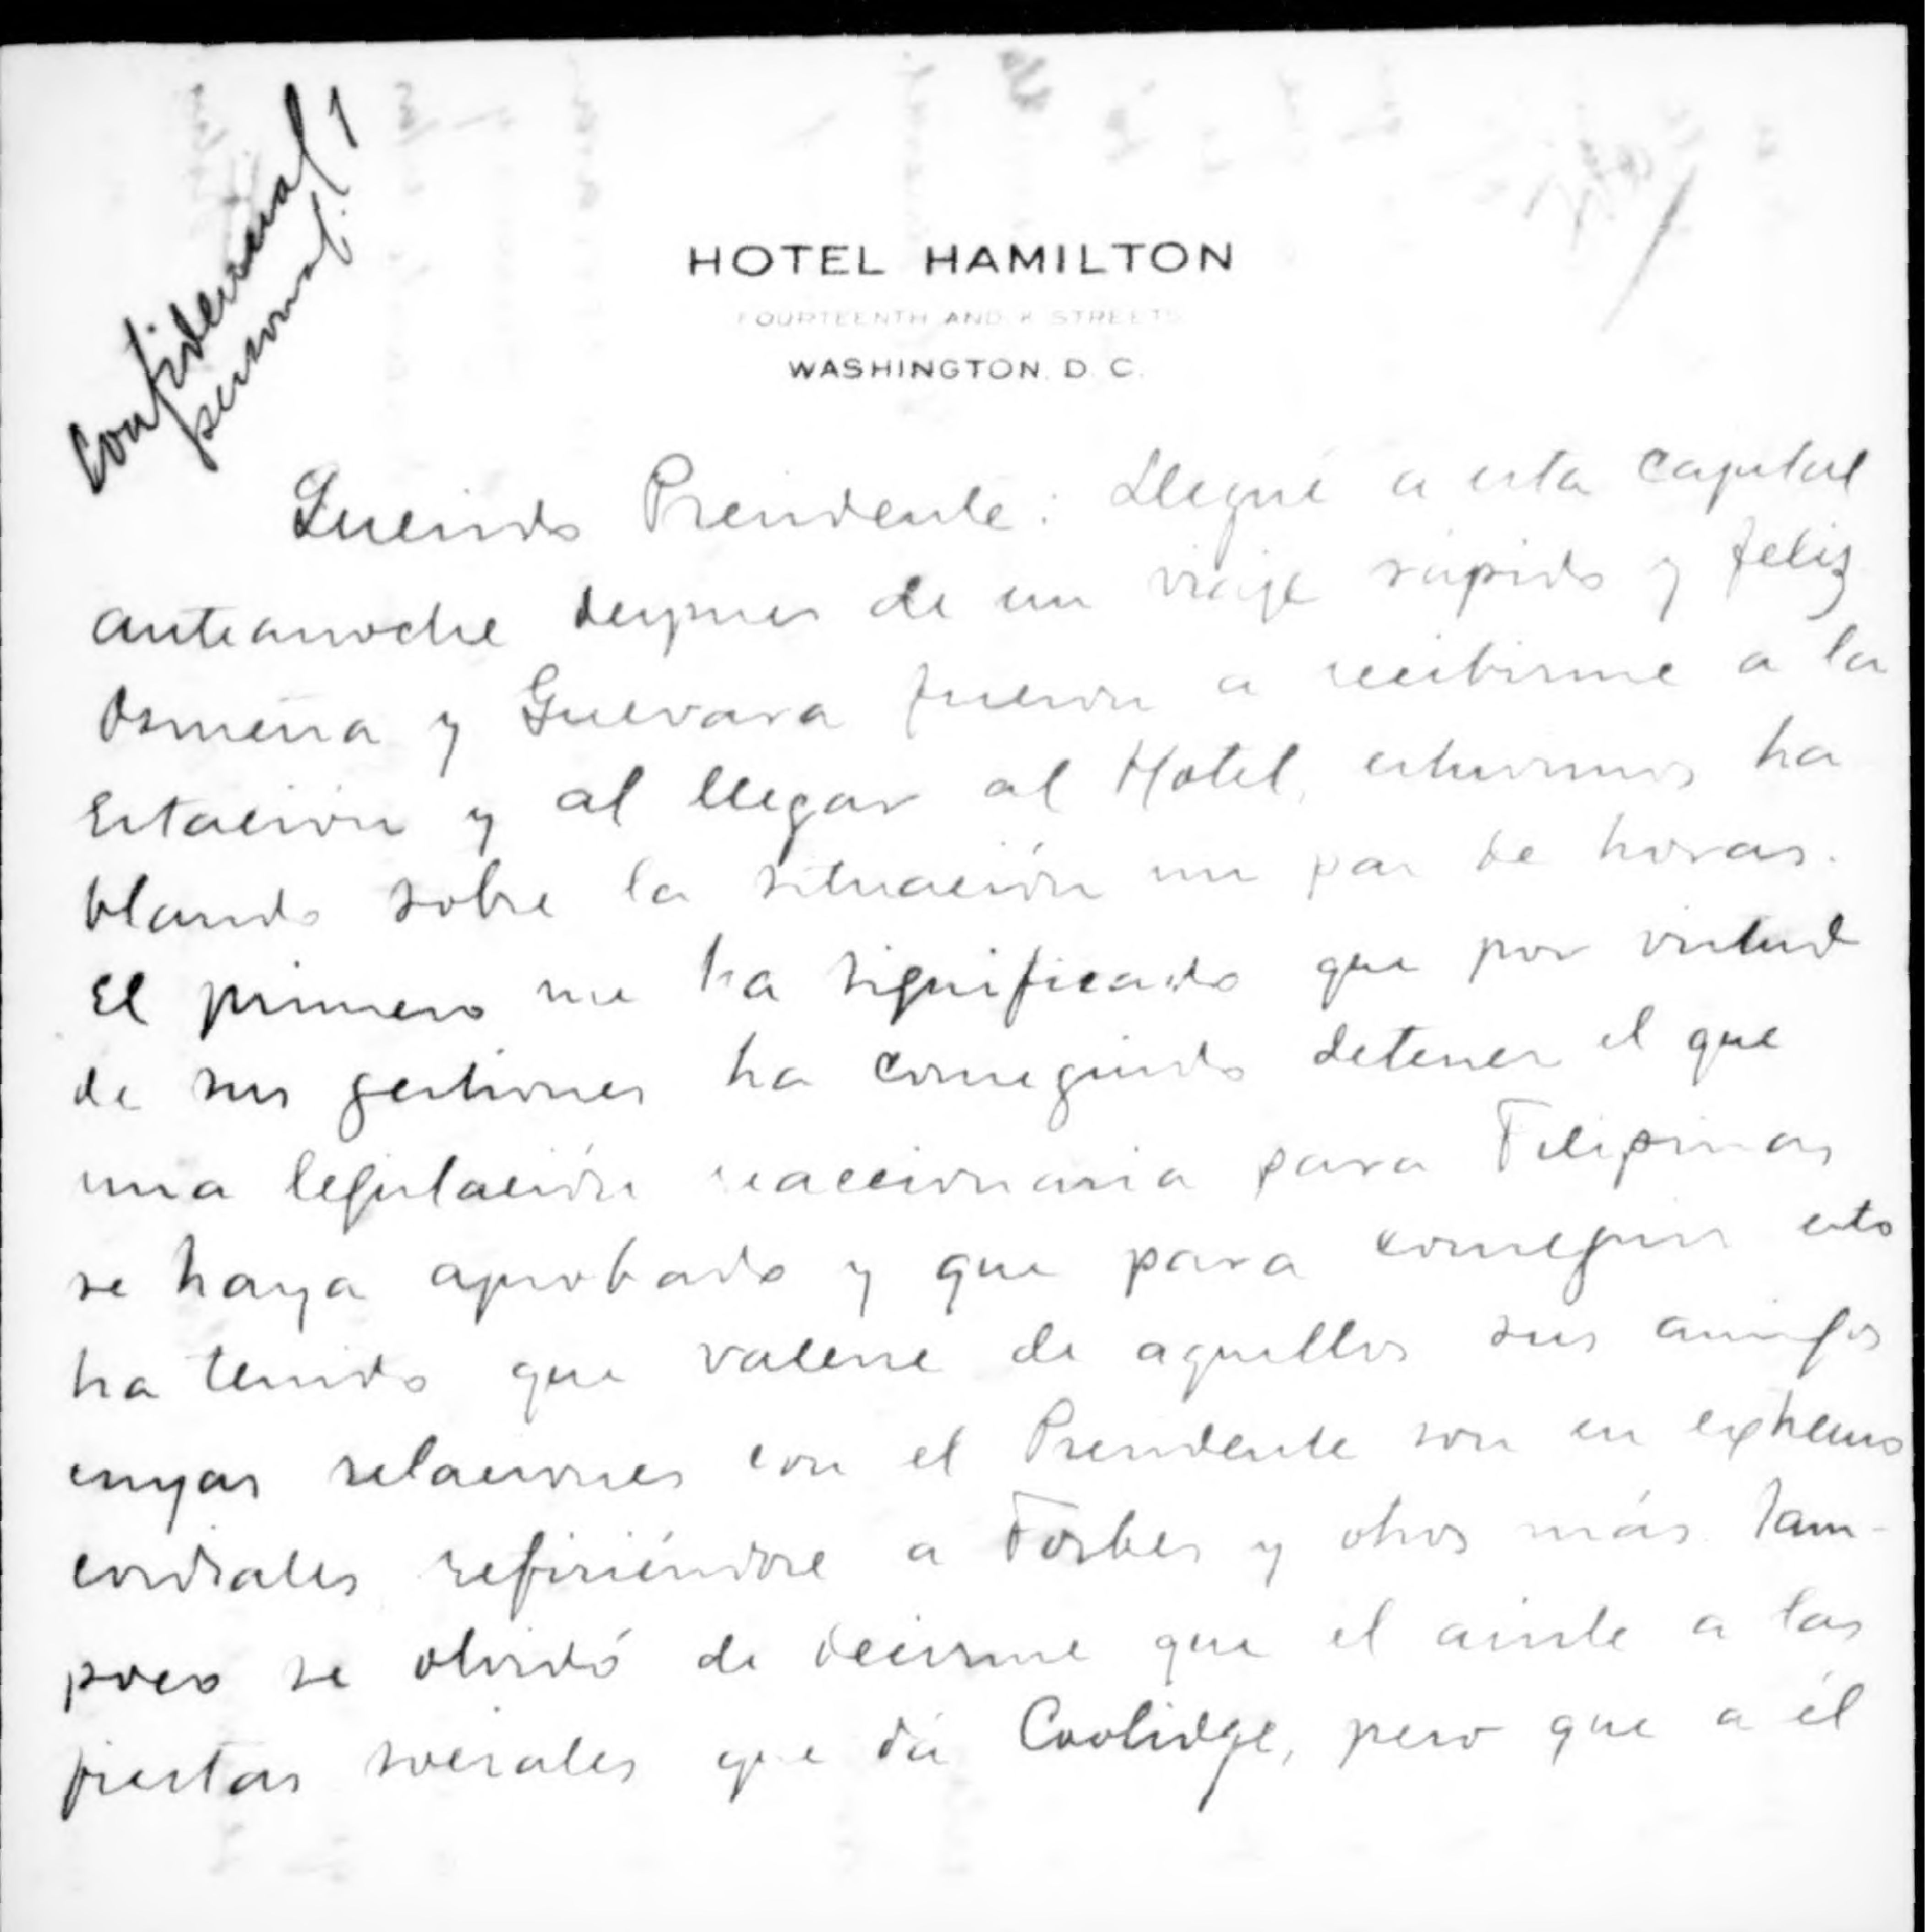 Confidencial y
personal.
HOTEL HAMILTON
FOURTEENTH AND K STREETS
WASHINGTON, D. C.
Querido Presidente: Llegué a esta capital
anteanoche despues de un viaje rápido y feliz
Osmeña y Guevara fueron a recibirme a la
Estación y al llegar al Hotel, estuvimos ha
blando sobre la situación un par de horas.
El primero me ha significado que por virtud
de sus gestiones ha conseguido detener el que
una legislación reaccionaria para Filipinas
se haya aprobado y que para conseguir esto
ha tenido que valerse de aquellos sus amigos
cuyas relaciones con el Presidente son en extremo
cordiales refiriéndose a Forbes y otros más. Tam-
poco se olvidó de decirme que el asiste a las
fiestas sociales que dá Coolidge, pero que a él